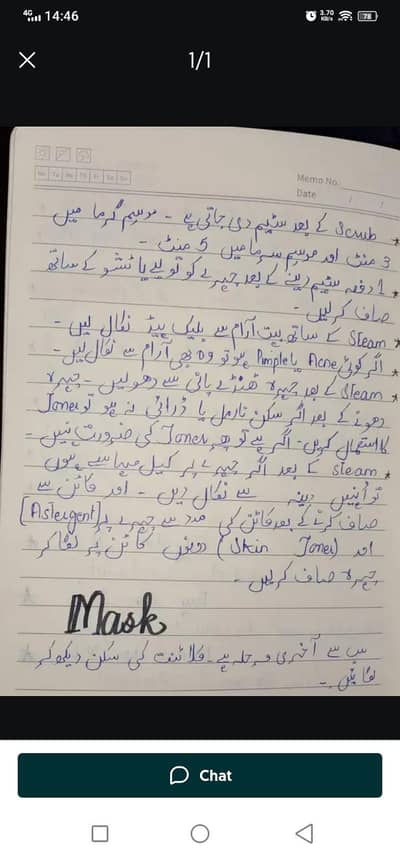 4G 14:46
3.70 KB/s 78
1/1
Mo Tu We Th Fr Sa Su
Memo No.
Date / /
* Scrub کے بعد سٹیم دی جاتی ہے - موسم گرما میں
3 منٹ اور موسم سرما میں 5 منٹ -
* 1 دفعہ سٹیم دینے کے بعد چہرے کو تولیے یا ٹشو کے ساتھ
صاف کر لیں -
* Steam کے ساتھ بہت آرام سے بلیک ہیڈ نکال لیں -
* اگر کوئی Acne یا Pimple ہو تو وہ بھی آرام سے نکال لیں -
* Steam کے بعد چہرہ ٹھنڈے پانی سے دھو لیں - چہرہ
دھونے کے بعد اگر سکن نارمل یا ڈرائی نہ ہو تو Toner
کا استعمال کریں - اگر ہے تو پھر Toner کی ضرورت نہیں -
* Steam کے بعد اگر چہرے پر کیل مہاسے ہوں
تو انہیں سے نکال دیں - اور کاٹن سے
صاف کرنے کے بعد کاٹن کی مدد سے چہرے پر (Astergent)
اور (Skin Toner) دونوں کاٹن پر لگا کر
چہرہ صاف کر لیں -
Mask
سب سے آخری مرحلہ ہے - کلائنٹ کی سکن دیکھ کر
لگائیں -
Chat